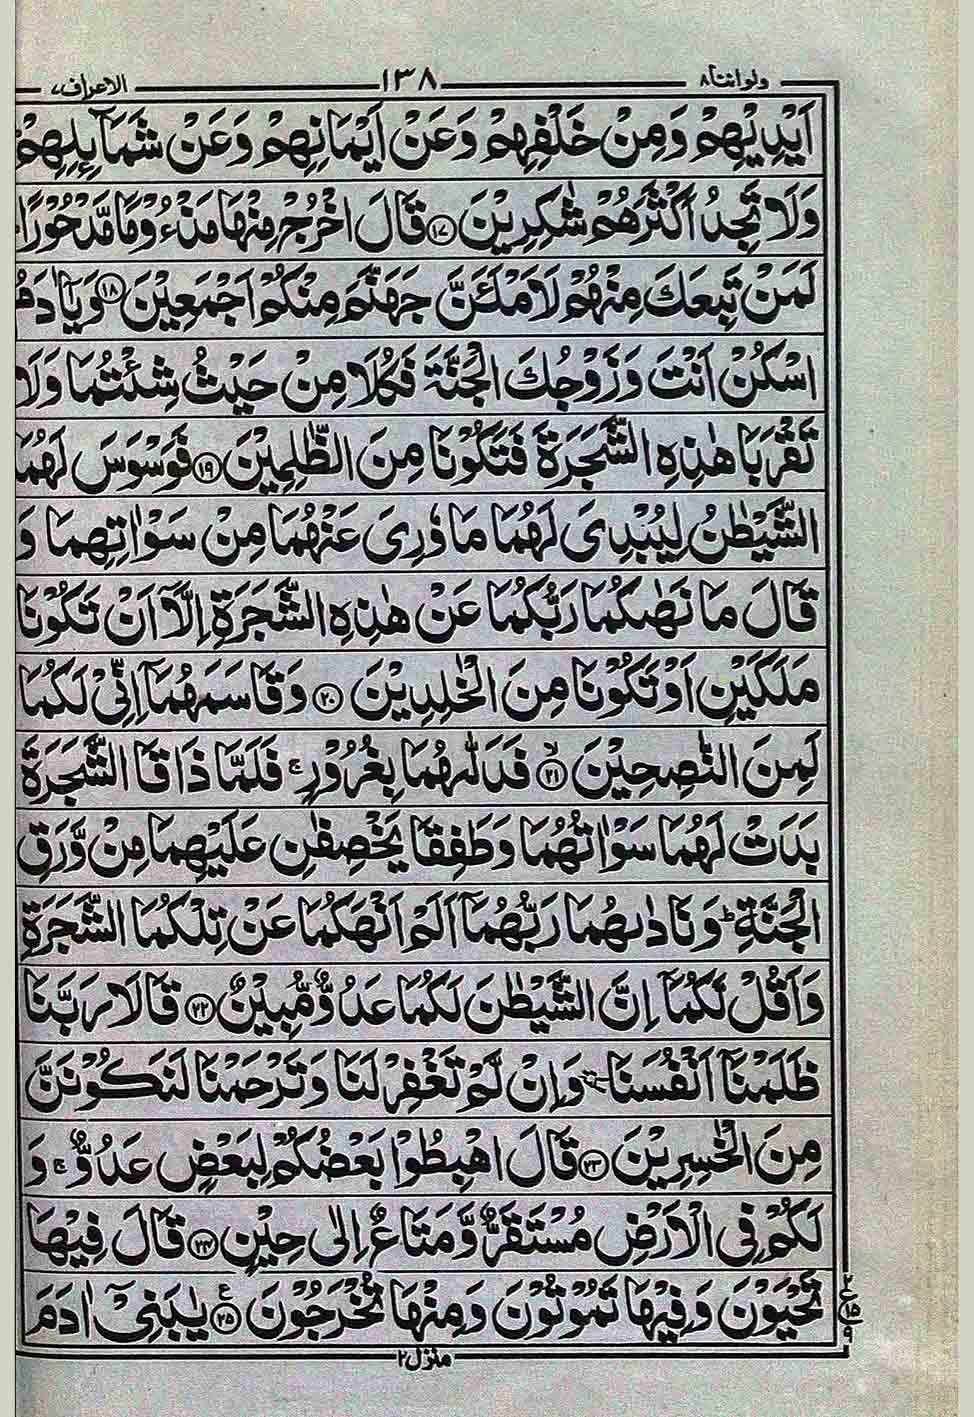 ولواننا ٨ ١٣٨ الاعراف ٧
اَيْدِيْهِمْ وَمِنْ خَلْفِهِمْ وَعَنْ اَيْمَانِهِمْ وَعَنْ شَمَآئِلِهِمْ
وَلَا تَجِدُ اَكْثَرَهُمْ شٰكِرِيْنَ ۝١٧ قَالَ اخْرُجْ مِنْهَا مَذْءُوْمًا مَّدْحُوْرًا
لَمَنْ تَبِعَكَ مِنْهُمْ لَاَمْلَئَنَّ جَهَنَّمَ مِنْكُمْ اَجْمَعِيْنَ ۝١٨ وَيٰۤاٰدَمُ
اسْكُنْ اَنْتَ وَزَوْجُكَ الْجَنَّةَ فَكُلَا مِنْ حَيْثُ شِئْتُمَا وَلَا
تَقْرَبَا هٰذِهِ الشَّجَرَةَ فَتَكُوْنَا مِنَ الظّٰلِمِيْنَ ۝١٩ فَوَسْوَسَ لَهُمَا
الشَّيْطٰنُ لِيُبْدِىَ لَهُمَا مَا وٗرِىَ عَنْهُمَا مِنْ سَوْاٰتِهِمَا وَ
قَالَ مَا نَهٰىكُمَا رَبُّكُمَا عَنْ هٰذِهِ الشَّجَرَةِ اِلَّآ اَنْ تَكُوْنَا
مَلَكَيْنِ اَوْ تَكُوْنَا مِنَ الْخٰلِدِيْنَ ۝٢٠ وَقَاسَمَهُمَآ اِنِّىْ لَكُمَا
لَمِنَ النّٰصِحِيْنَ ۝٢١ۙ فَدَلّٰىهُمَا بِغُرُوْرٍ ۚ فَلَمَّا ذَاقَا الشَّجَرَةَ
بَدَتْ لَهُمَا سَوْاٰتُهُمَا وَطَفِقَا يَخْصِفٰنِ عَلَيْهِمَا مِنْ وَّرَقِ
الْجَنَّةِ ؕ وَنَادٰىهُمَا رَبُّهُمَآ اَلَمْ اَنْهَكُمَا عَنْ تِلْكُمَا الشَّجَرَةِ
وَاَقُلْ لَّكُمَآ اِنَّ الشَّيْطٰنَ لَكُمَا عَدُوٌّ مُّبِيْنٌ ۝٢٢ قَالَا رَبَّنَا
ظَلَمْنَآ اَنْفُسَنَا وَاِنْ لَّمْ تَغْفِرْ لَنَا وَتَرْحَمْنَا لَنَكُوْنَنَّ
مِنَ الْخٰسِرِيْنَ ۝٢٣ قَالَ اهْبِطُوْا بَعْضُكُمْ لِبَعْضٍ عَدُوٌّ ۚ وَ
لَكُمْ فِى الْاَرْضِ مُسْتَقَرٌّ وَّمَتَاعٌ اِلٰى حِيْنٍ ۝٢٤ قَالَ فِيْهَا
تَحْيَوْنَ وَفِيْهَا تَمُوْتُوْنَ وَمِنْهَا تُخْرَجُوْنَ ۝٢٥ع يٰبَنِىْٓ اٰدَمَ
٢ع١٥ ٩
منزل ٢